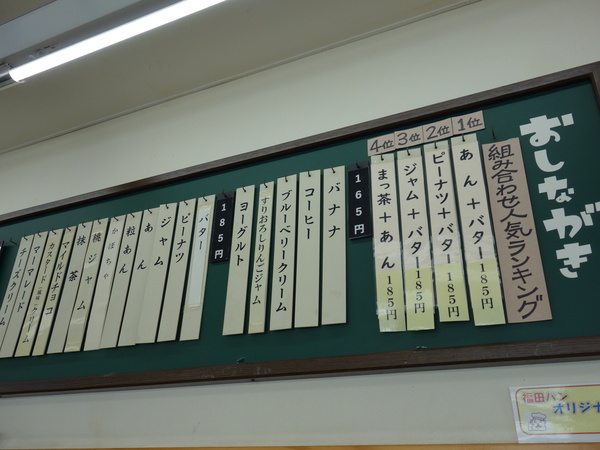 おしながき
組み合わせ人気ランキング
1位
あん+バター 185円
2位
ピーナツ+バター 185円
3位
ジャム+バター 185円
4位
まっ茶+あん 185円
165円
バナナ
コーヒー
ブルーベリークリーム
すりおろしりんごジャム
ヨーグルト
185円
バター
ピーナツ
ジャム
あん
粒あん
かぼちゃ
桃ジャム
抹茶
マイルドチョコ
カスタードクリーム
マーマレード
チーズクリーム
福田パン
オリジナ